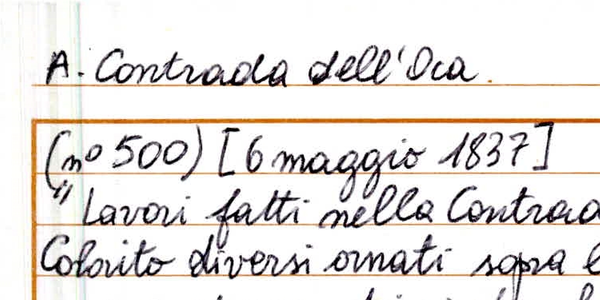 A. Contrada dell'Oca.
(no 500) [6 maggio 1837]
"Lavori fatti nella Contrad
Colorito diversi ornati sopra